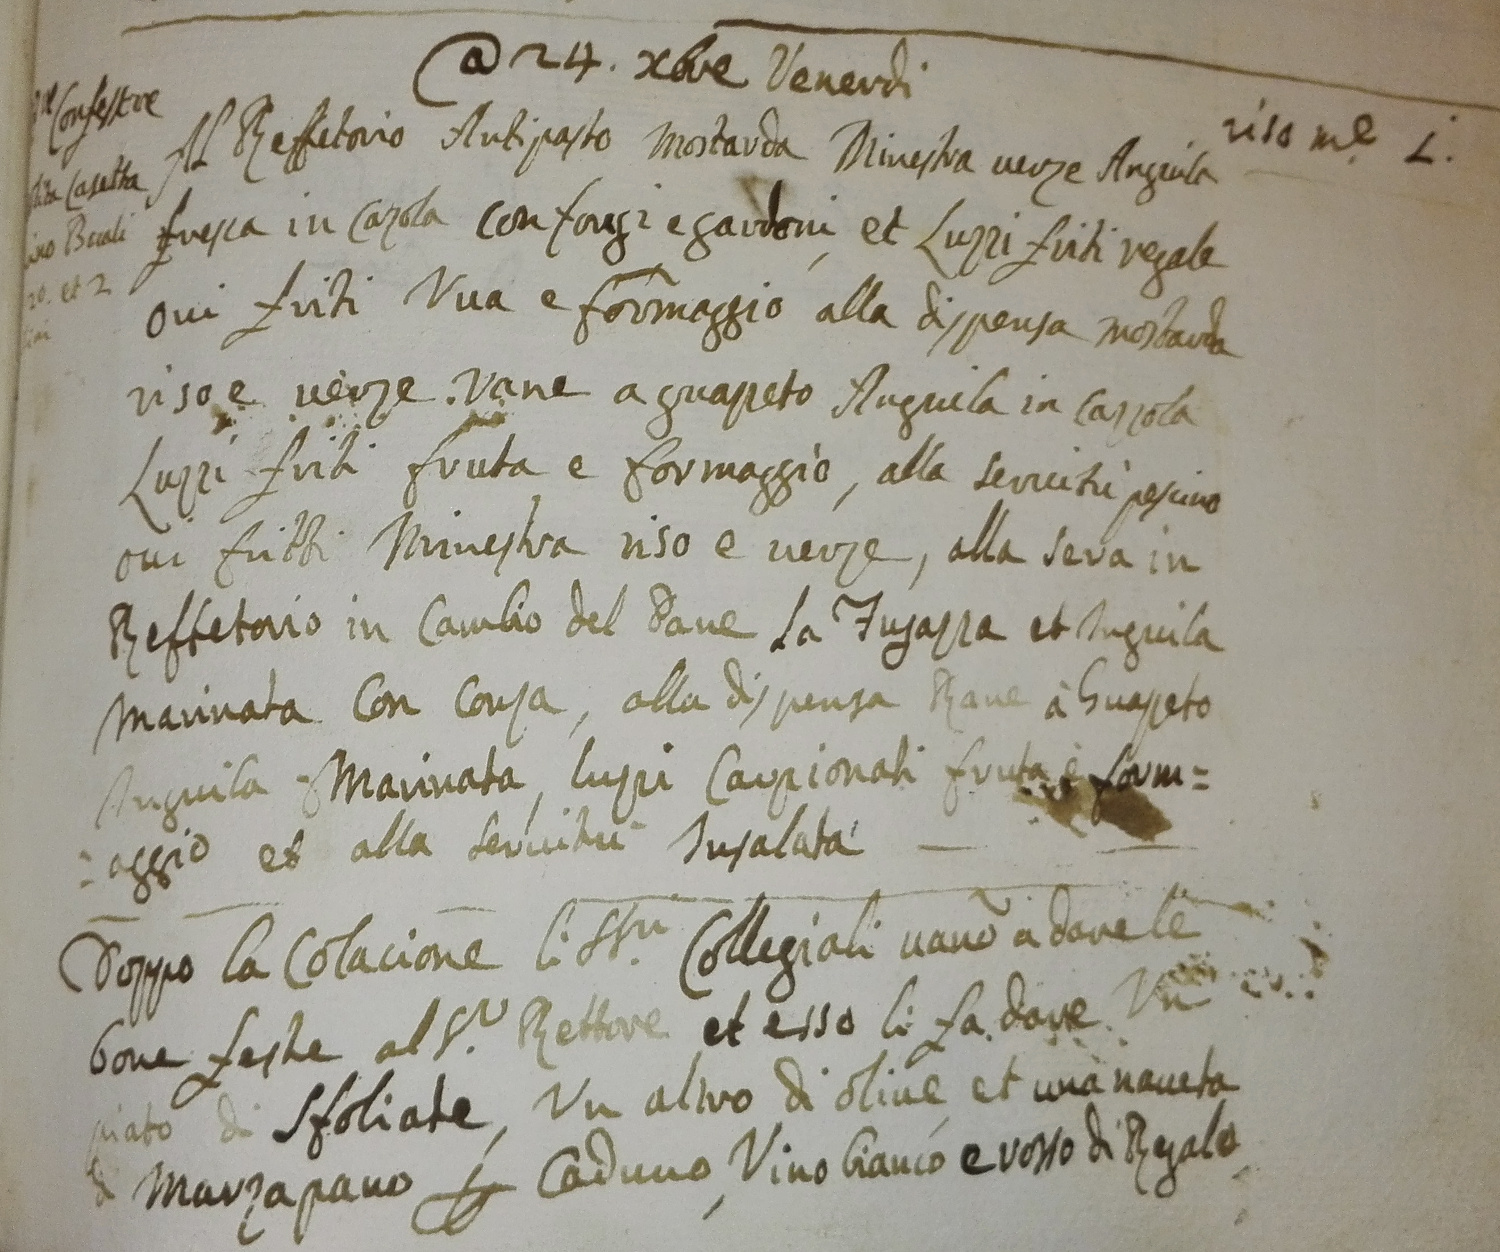 @ 24. xbre Venerdi
riso me. L.
Al Reffetorio Antipasto mostarda Minestra verze Anguila
fresca in cazola con fongi e gardoni, et Luzzi friti regale
ovi friti Vua e formaggio alla dispensa mostarda
riso e verze. Rane a guazzeto Anguila in cazzola
Luzzi friti fruta e formaggio, alla servitù pescino
ovi fritti Minestra riso e verze, alla sera in
Reffetorio in Cambio del Pane La Fugazza et Anguila
Marinata con consa, alla dispensa Rane à Guazzeto
Anguila Marinata, luzzi Carpionati fruta e form=
=aggio et alla servitù Insalata
Doppo la Colacione li SSri. Collegiali vano a dare le
bone feste al Sr. Rettore et esso li fa dare Un
piato di Sfoliate, Un altro di olive, et una naveta
di Marzapano per Caduno, Vino bianco e rosso di Regalo
Casetta
Bocali
20. et 2